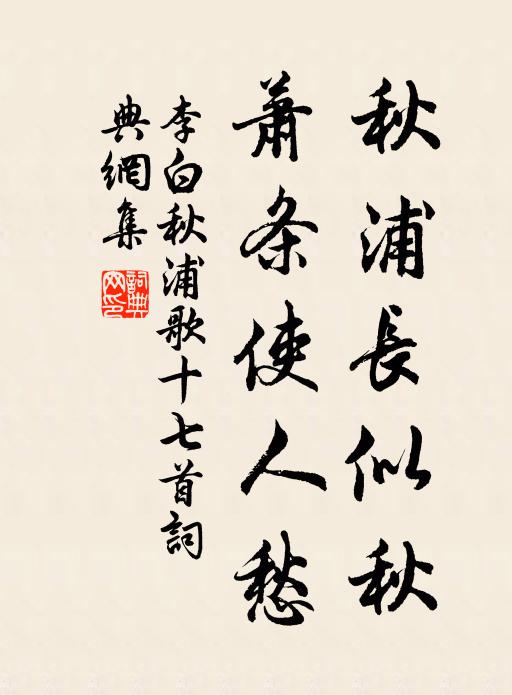 秋浦長似秋
蕭条使人愁
李白秋浦歌十七首詞
典網集
詞典
网印